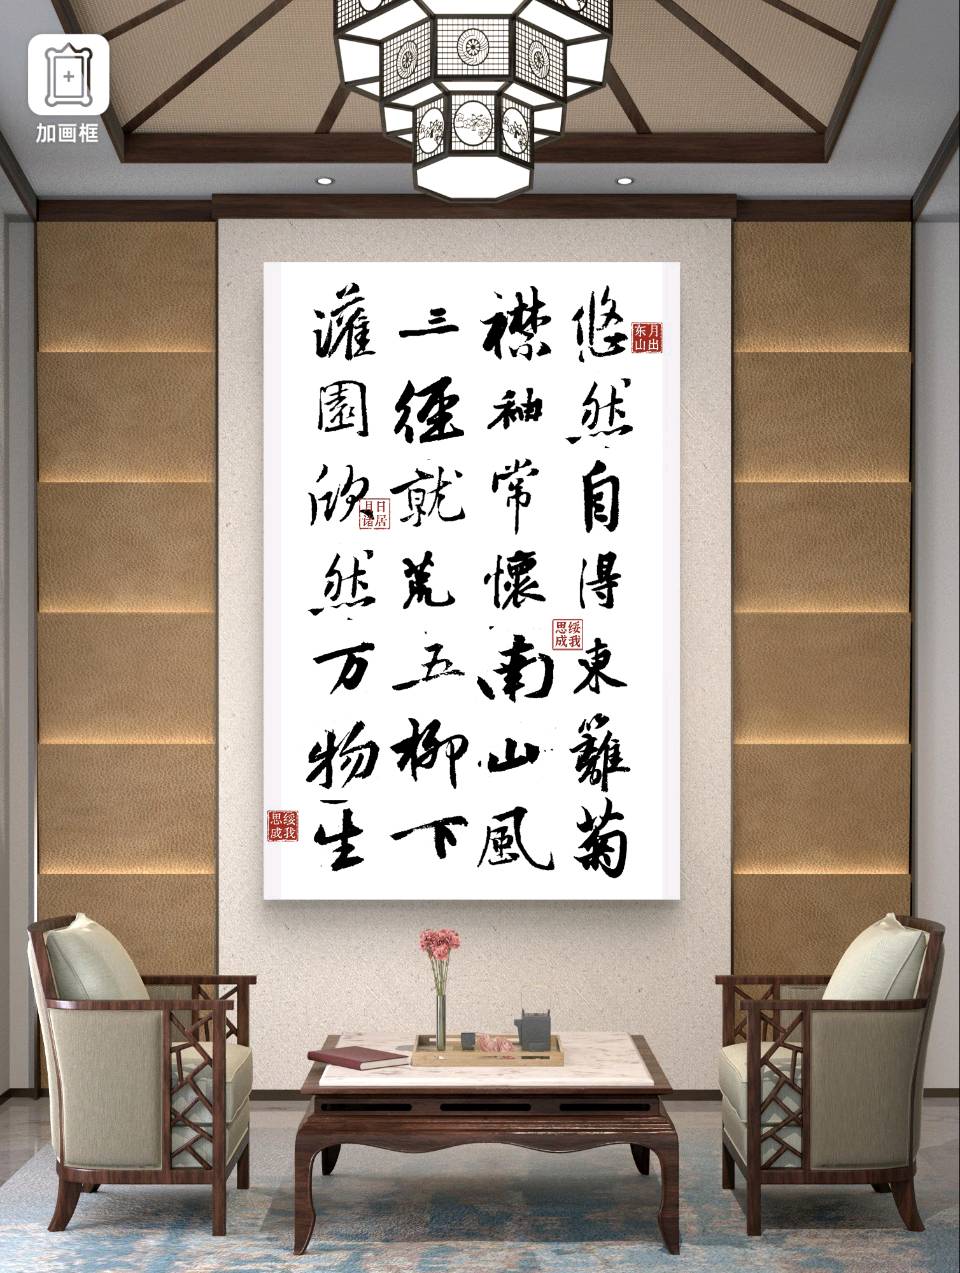 加画框
悠然自得東籬菊
襟袖常懷南山風
三徑就荒五柳下
灌園欣然万物生
月出东山
绥我思成
日居月诸
绥我思成